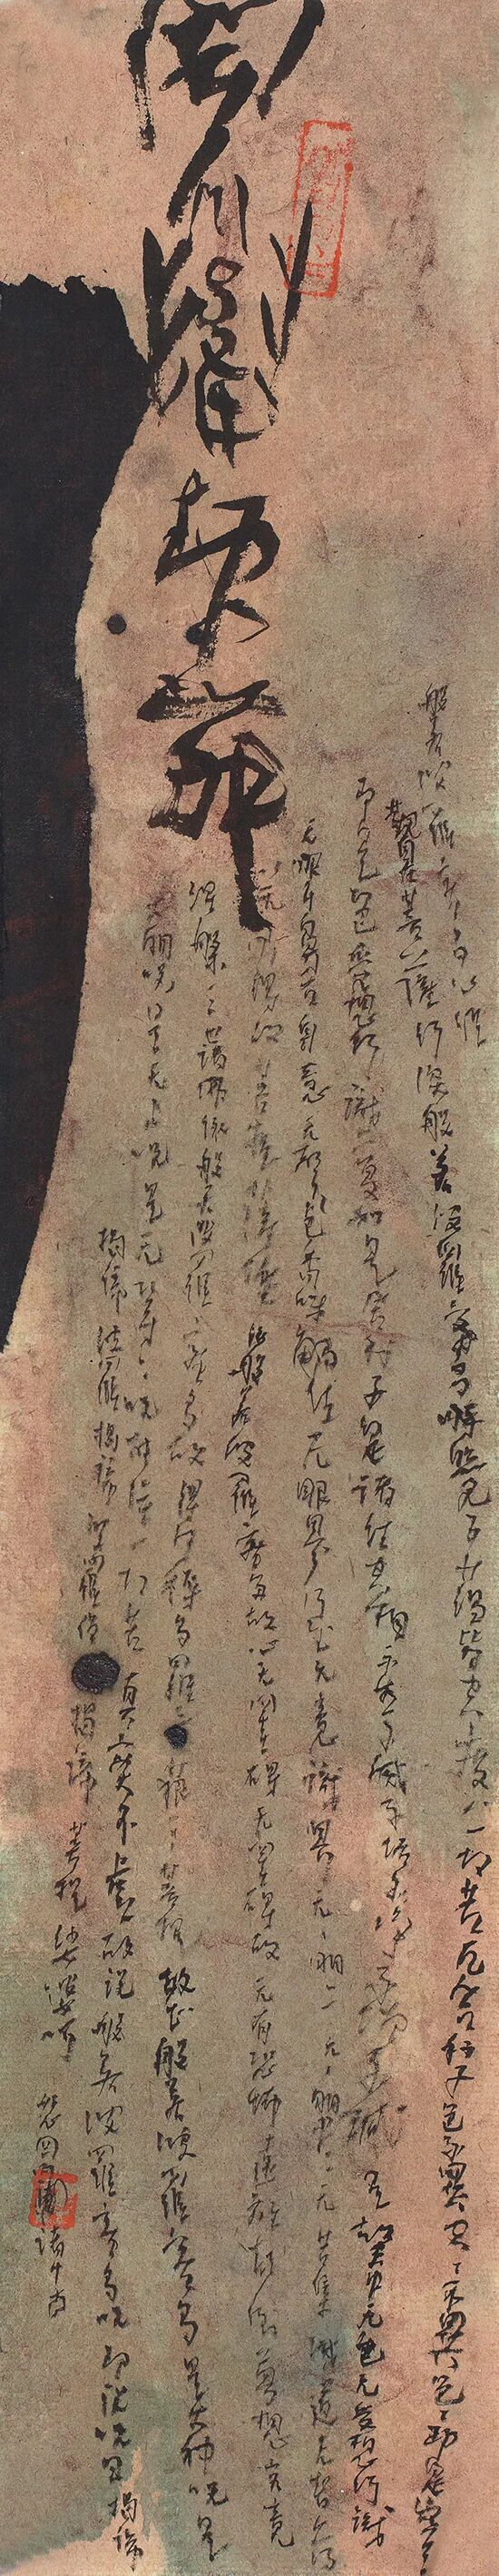 般若波羅蜜多心經
觀自在菩薩行深般若波羅蜜多時照見五蘊皆空度一切苦厄舍利子色不異空空不異色色即是空空
即是色受想行識亦復如是舍利子是諸法空相不生不滅不垢不淨不增不減是故空中无色无受想行識
无眼耳鼻舌身意无聲色香味觸法无眼界乃至无意識界无无明亦无无明盡无苦集滅道无智亦无得
以无所得故菩提薩埵依般若波羅蜜多故心无罣礙无罣礙故无有恐怖遠離顛倒夢想究竟
涅槃三世諸佛依般若波羅蜜多故得阿耨多羅三藐三菩提故知般若波羅蜜多是大神咒是
大明咒是无上咒是无等等咒能除一切苦真實不虛故說般若波羅蜜多咒即說咒曰揭諦
揭諦波羅揭諦波羅僧揭諦菩提娑婆呵